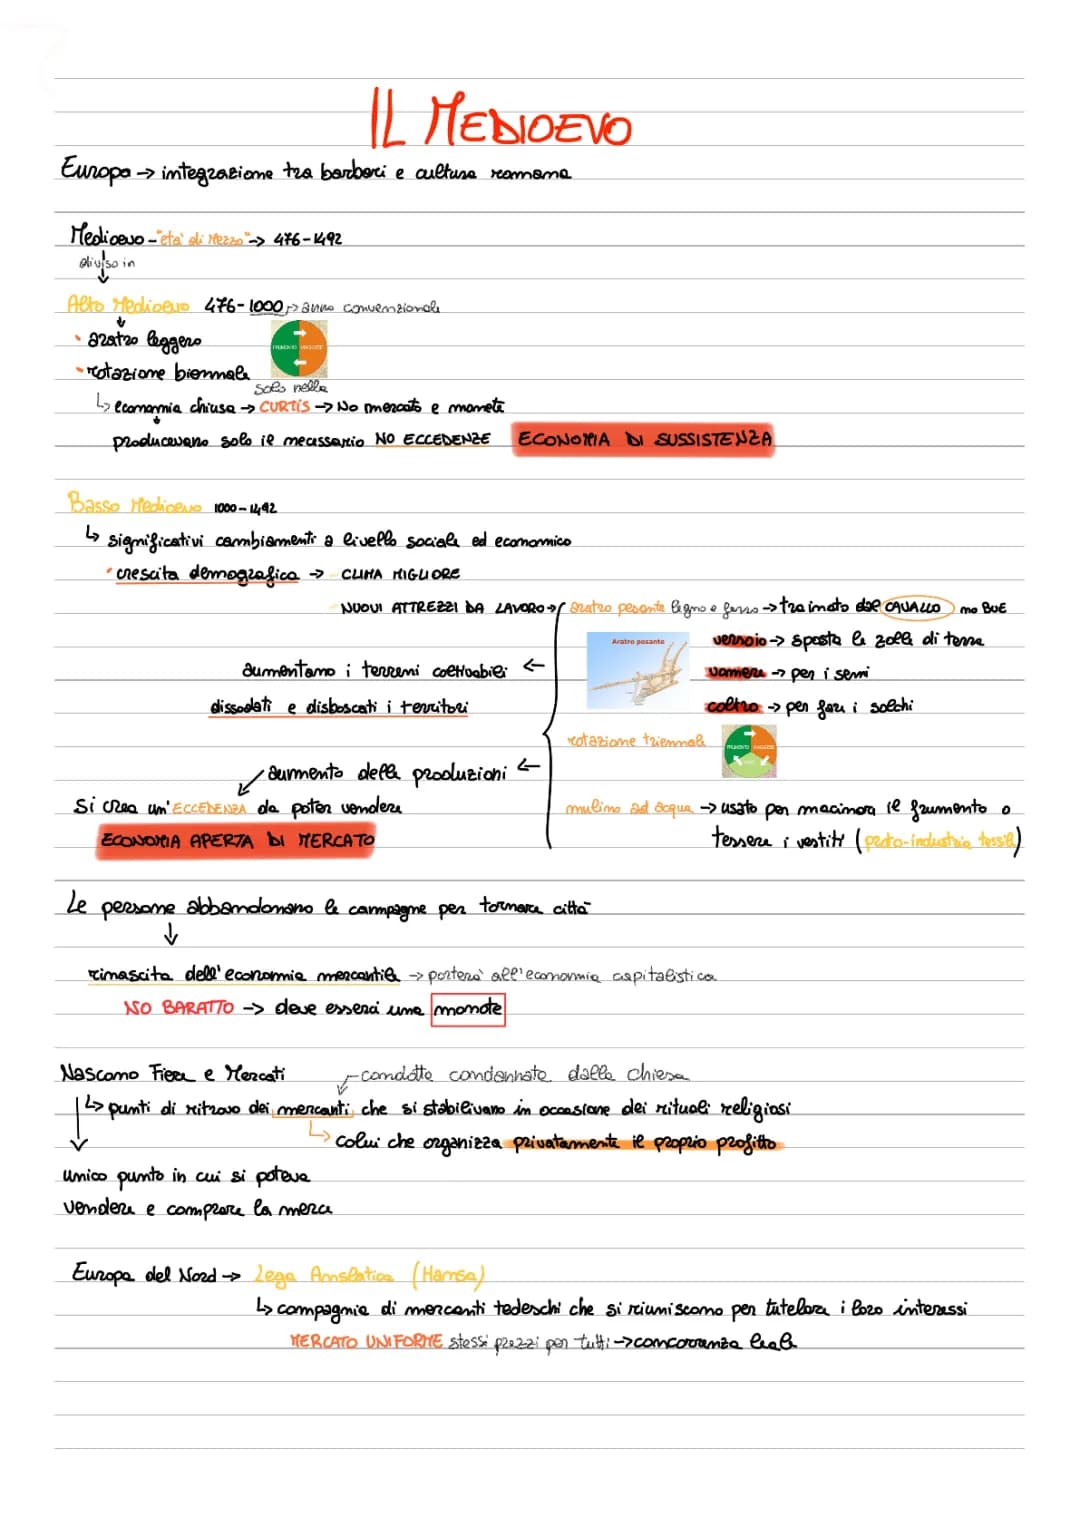 IL MEDIOEVO
Europa → integrazione tra barbari e cultura romana
Medioevo - "eta' di Mezzo" → 476-1492
diviso in
Alto Medioevo 476-1000 → anno convenzionale
• aratro leggero
• rotazione biennale
solo nella
↳ economia chiusa → CURTIS → No mercato e monete
producevano solo il necessario NO ECCEDENZE ECONOMIA DI SUSSISTENZA
Basso Medioevo 1000-1492
↳ significativi cambiamenti a livello sociale ed economico
• crescita demografica → CLIMA MIGLIORE
NUOVI ATTREZZI DA LAVORO → aratro pesante legno e ferro → trainato dal CAVALLO no BUE
Aratro pesante
versoio → sposta le zolle di terra
aumentano i terreni coltivabili ←
vomere → per i semi
dissodati e disboscati i territori
coltro → per fare i solchi
rotazione triennale
MAGGESE
aumento della produzioni ←
Si crea un' ECCEDENZA da poter vendere
mulino ad acqua → usato per macinare il frumento o
ECONOMIA APERTA DI MERCATO
tessere i vestiti (proto-industria tessile)
Le persone abbandonano le campagne per tornare città
rinascita dell'economia mercantile → portera' all'economia capitalistica
NO BARATTO → deve esserci una moneta
Nascono Fiere e Mercati
condotte condannate dalla chiesa
↳ punti di ritrovo dei mercanti che si stabilivano in occasione dei rituali religiosi
↳ colui che organizza privatamente il proprio profitto
unico punto in cui si poteva
vendere e comprare la merce
Europa del Nord → Lega Anseatica (Hansa)
↳ compagnia di mercanti tedeschi che si riuniscono per tutelare i loro interessi
MERCATO UNIFORME stessi prezzi per tutti → concorrenza leale